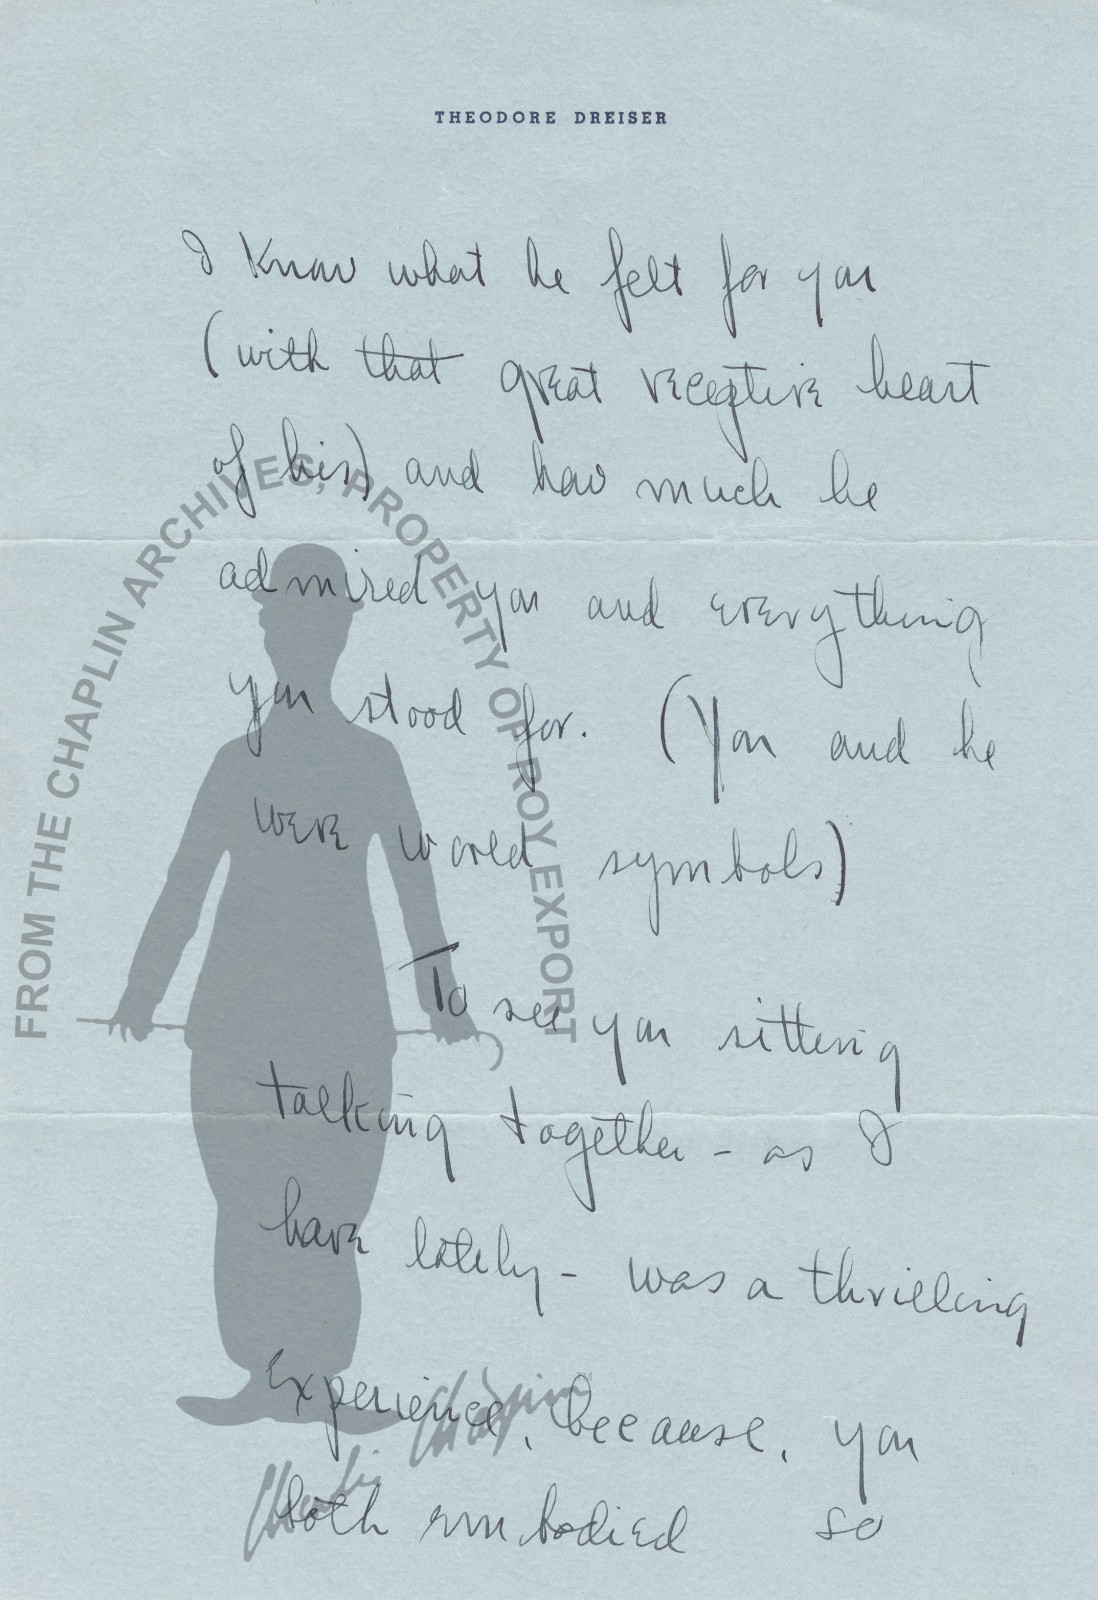 THEODORE DREISER
I know what he felt for you
(with that great receptive heart
of his) and how much he
admired you and everything
you stood for. (You and he
were world symbols)
To see you sitting
talking together - as I
have lately - was a thrilling
experience, because, you
both embodied so
FROM THE CHAPLIN ARCHIVES, PROPERTY OF ROY EXPORT
Charlie Chaplin